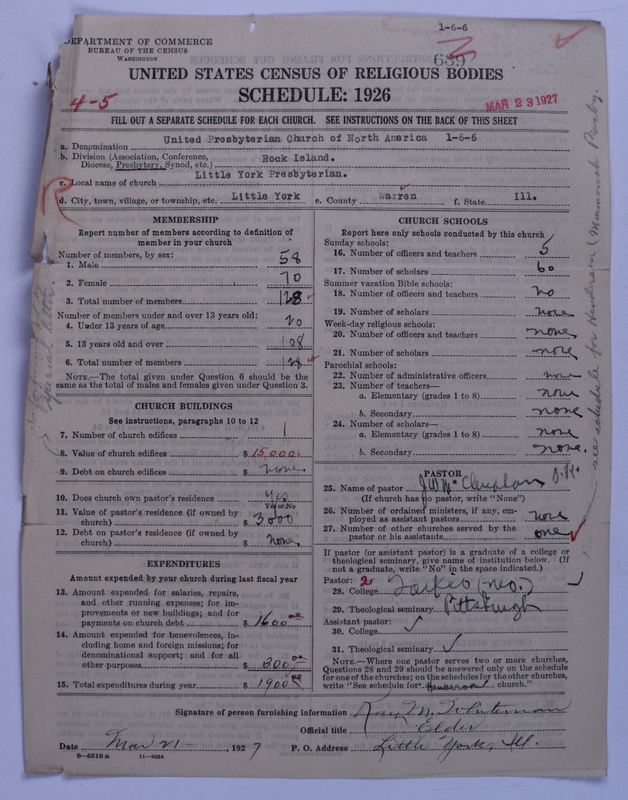 1-6-6
DEPARTMENT OF COMMERCE
BUREAU OF THE CENSUS
WASHINGTON
639
UNITED STATES CENSUS OF RELIGIOUS BODIES
SCHEDULE: 1926
4-5
MAR 23 1927
FILL OUT A SEPARATE SCHEDULE FOR EACH CHURCH. SEE INSTRUCTIONS ON THE BACK OF THIS SHEET
a. Denomination United Presbyterian Church of North America 1-6-6
b. Division (Association, Conference, Diocese, Presbytery, Synod, etc.) Rock Island.
c. Local name of church Little York Presbyterian.
d. City, town, village, or township, etc. Little York e. County Warren f. State Ill.
R
MEMBERSHIP
Report number of members according to definition of
member in your church
Number of members, by sex:
1. Male 58
2. Female 70
3. Total number of members 128
Number of members under and over 13 years old:
4. Under 13 years of age 20
5. 13 years old and over 108
6. Total number of members 128
NOTE.—The total given under Question 6 should be the
same as the total of males and females given under Question 3.
CHURCH BUILDINGS
See instructions, paragraphs 10 to 12
7. Number of church edifices 1
8. Value of church edifices $ 15,000.
9. Debt on church edifices $ none
10. Does church own pastor's residence Yes
Yes or No
11. Value of pastor's residence (if owned by
church) $ 3000
12. Debt on pastor's residence (if owned by
church) $ none
EXPENDITURES
Amount expended by your church during last fiscal year
13. Amount expended for salaries, repairs,
and other running expenses; for im-
provements or new buildings; and for
payments on church debt $ 1600.00
14. Amount expended for benevolences, in-
cluding home and foreign missions; for
denominational support; and for all
other purposes $ 300.00
15. Total expenditures during year $ 1900.00
CHURCH SCHOOLS
Report here only schools conducted by this church
Sunday schools:
16. Number of officers and teachers 5
17. Number of scholars 60
Summer vacation Bible schools:
18. Number of officers and teachers no
19. Number of scholars none
Week-day religious schools:
20. Number of officers and teachers none
21. Number of scholars none
Parochial schools:
22. Number of administrative officers none
23. Number of teachers—
a. Elementary (grades 1 to 8) none
b. Secondary none
24. Number of scholars—
a. Elementary (grades 1 to 8) none
b. Secondary none.
PASTOR
25. Name of pastor J.W.
(If church has no pastor, write "None")
26. Number of ordained ministers, if any, em-
ployed as assistant pastors none
27. Number of other churches served by the
pastor or his assistants one
If pastor (or assistant pastor) is a graduate of a college or
theological seminary, give name of institution below. (If
not a graduate, write "No" in the space indicated.)
Pastor: 2
28. College Tarkio (Mo.)
29. Theological seminary Pittsburgh
Assistant pastor:
30. College
31. Theological seminary
NOTE.—Where one pastor serves two or more churches,
Questions 28 and 29 should be answered only on the schedule
for one of the churches; on the schedules for the other churches,
write "See schedule for Henderson church."
see schedule for Henderson (Monmouth Presby.
Signature of person furnishing information Ray M. Whiteman
Official title Elder
Date Mar 21, 1927 P. O. Address Little York, Ill.
8-5518a 11-9054